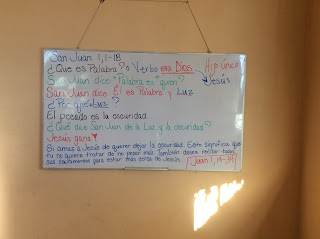 San Juan 1,1-18
¿Que es Palabra? o Verbo era Dios → Hijo único
San Juan dice "Palabra es" quien? Jesús
San Juan dice Él es Palabra y Luz
¿Por qué Luz?
El pecado es la oscuridad
¿Qué dice San Juan de la Luz y la oscuridad?
Jesús gana ♥
Si amas a Jesús de quieres dejar la oscuridad. Esto significa que
tu no quieres tratar de no pecar más. También debes recibir todos
sus sacramentos para estar más cerca de Jesús.
Juan 1, 19-34